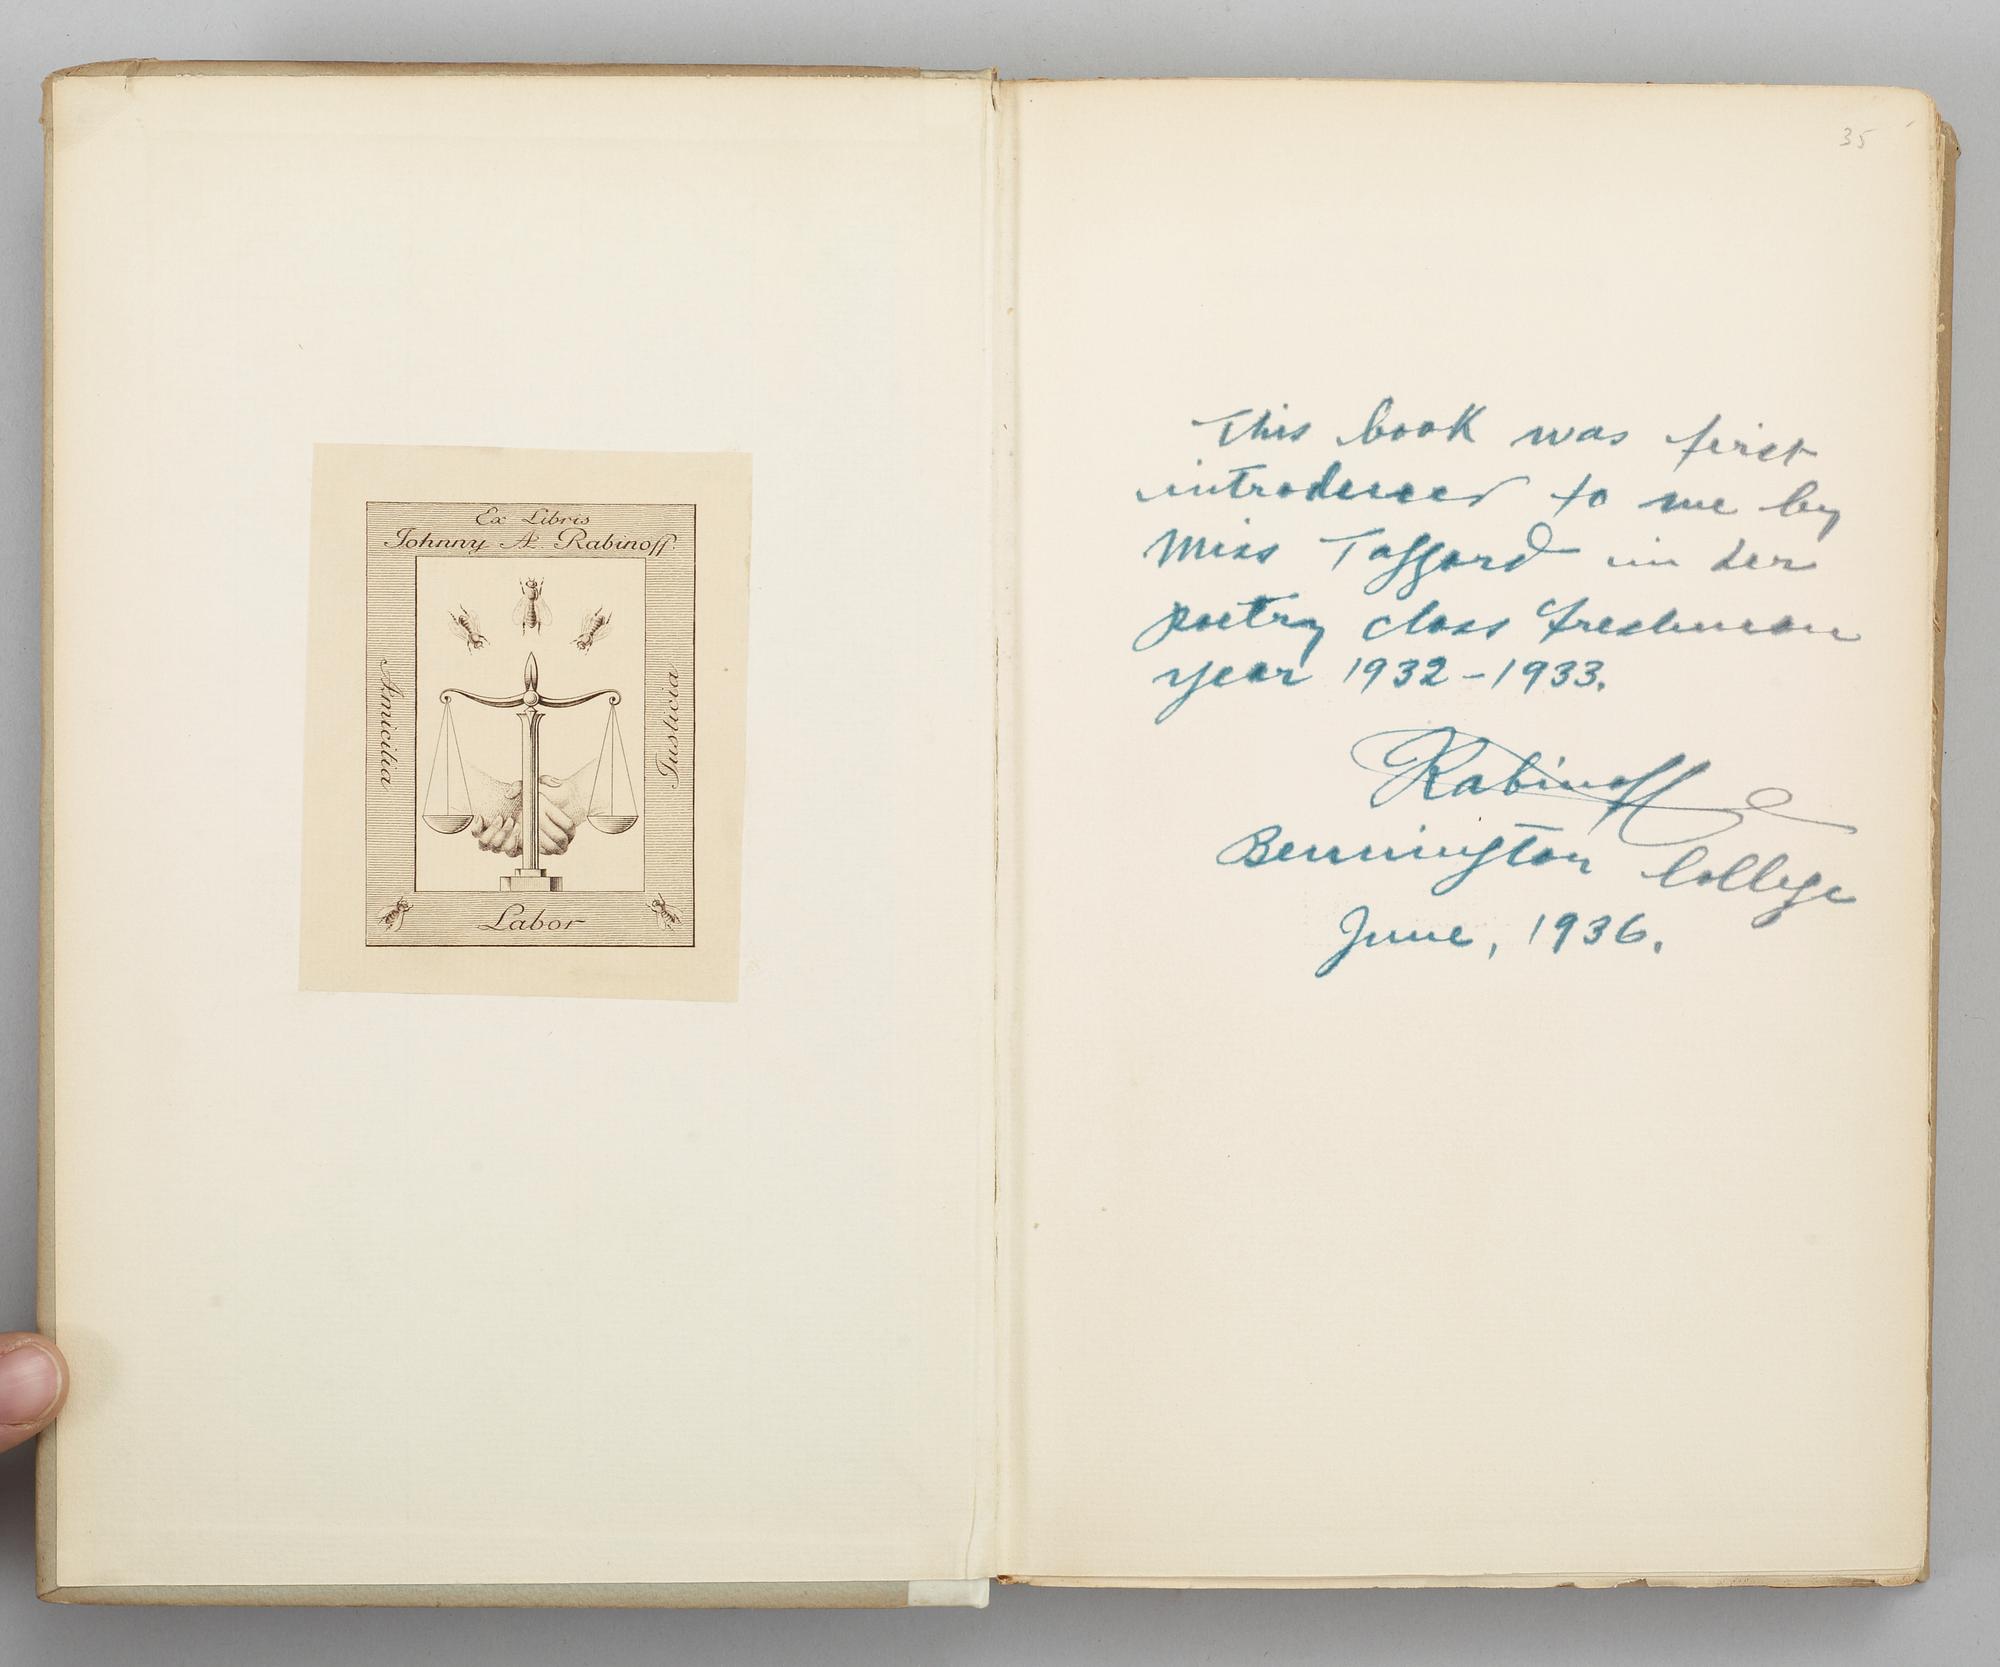 Ex Libris
Johnny A. Rabinoff.
Amicitia
Justicia
Labor
35
This book was first
introduced to me by
Miss Taggard in her
poetry class freshman
year 1932-1933.
Rabinoff
Bennington College
June, 1936.